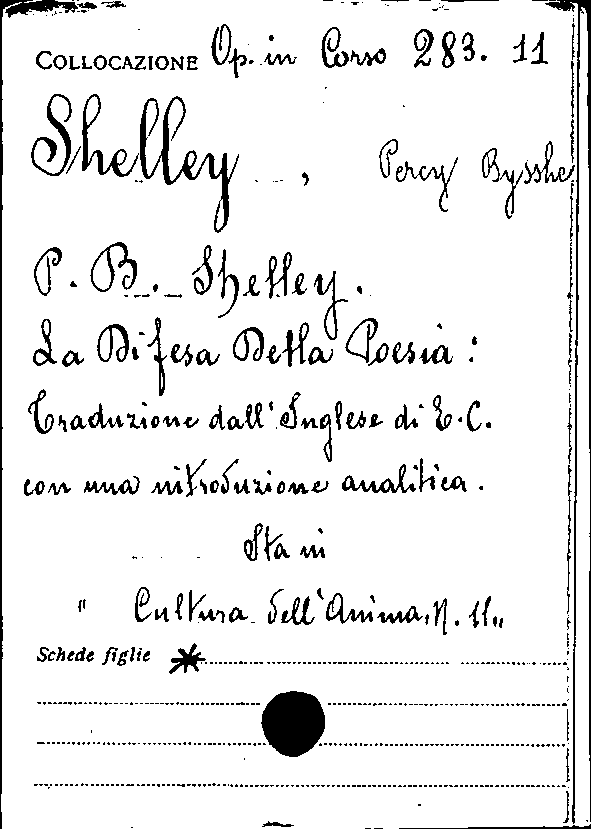 COLLOCAZIONE Op. in Corso 283. 11
Shelley , Percy Bysshe
P. B. Shelley.
La Difesa Della Poesia:
Traduzione dall'Inglese di E. C.
con una introduzione analitica.
Sta in
" Cultura dell'Anima, N. 11"
Schede figlie *